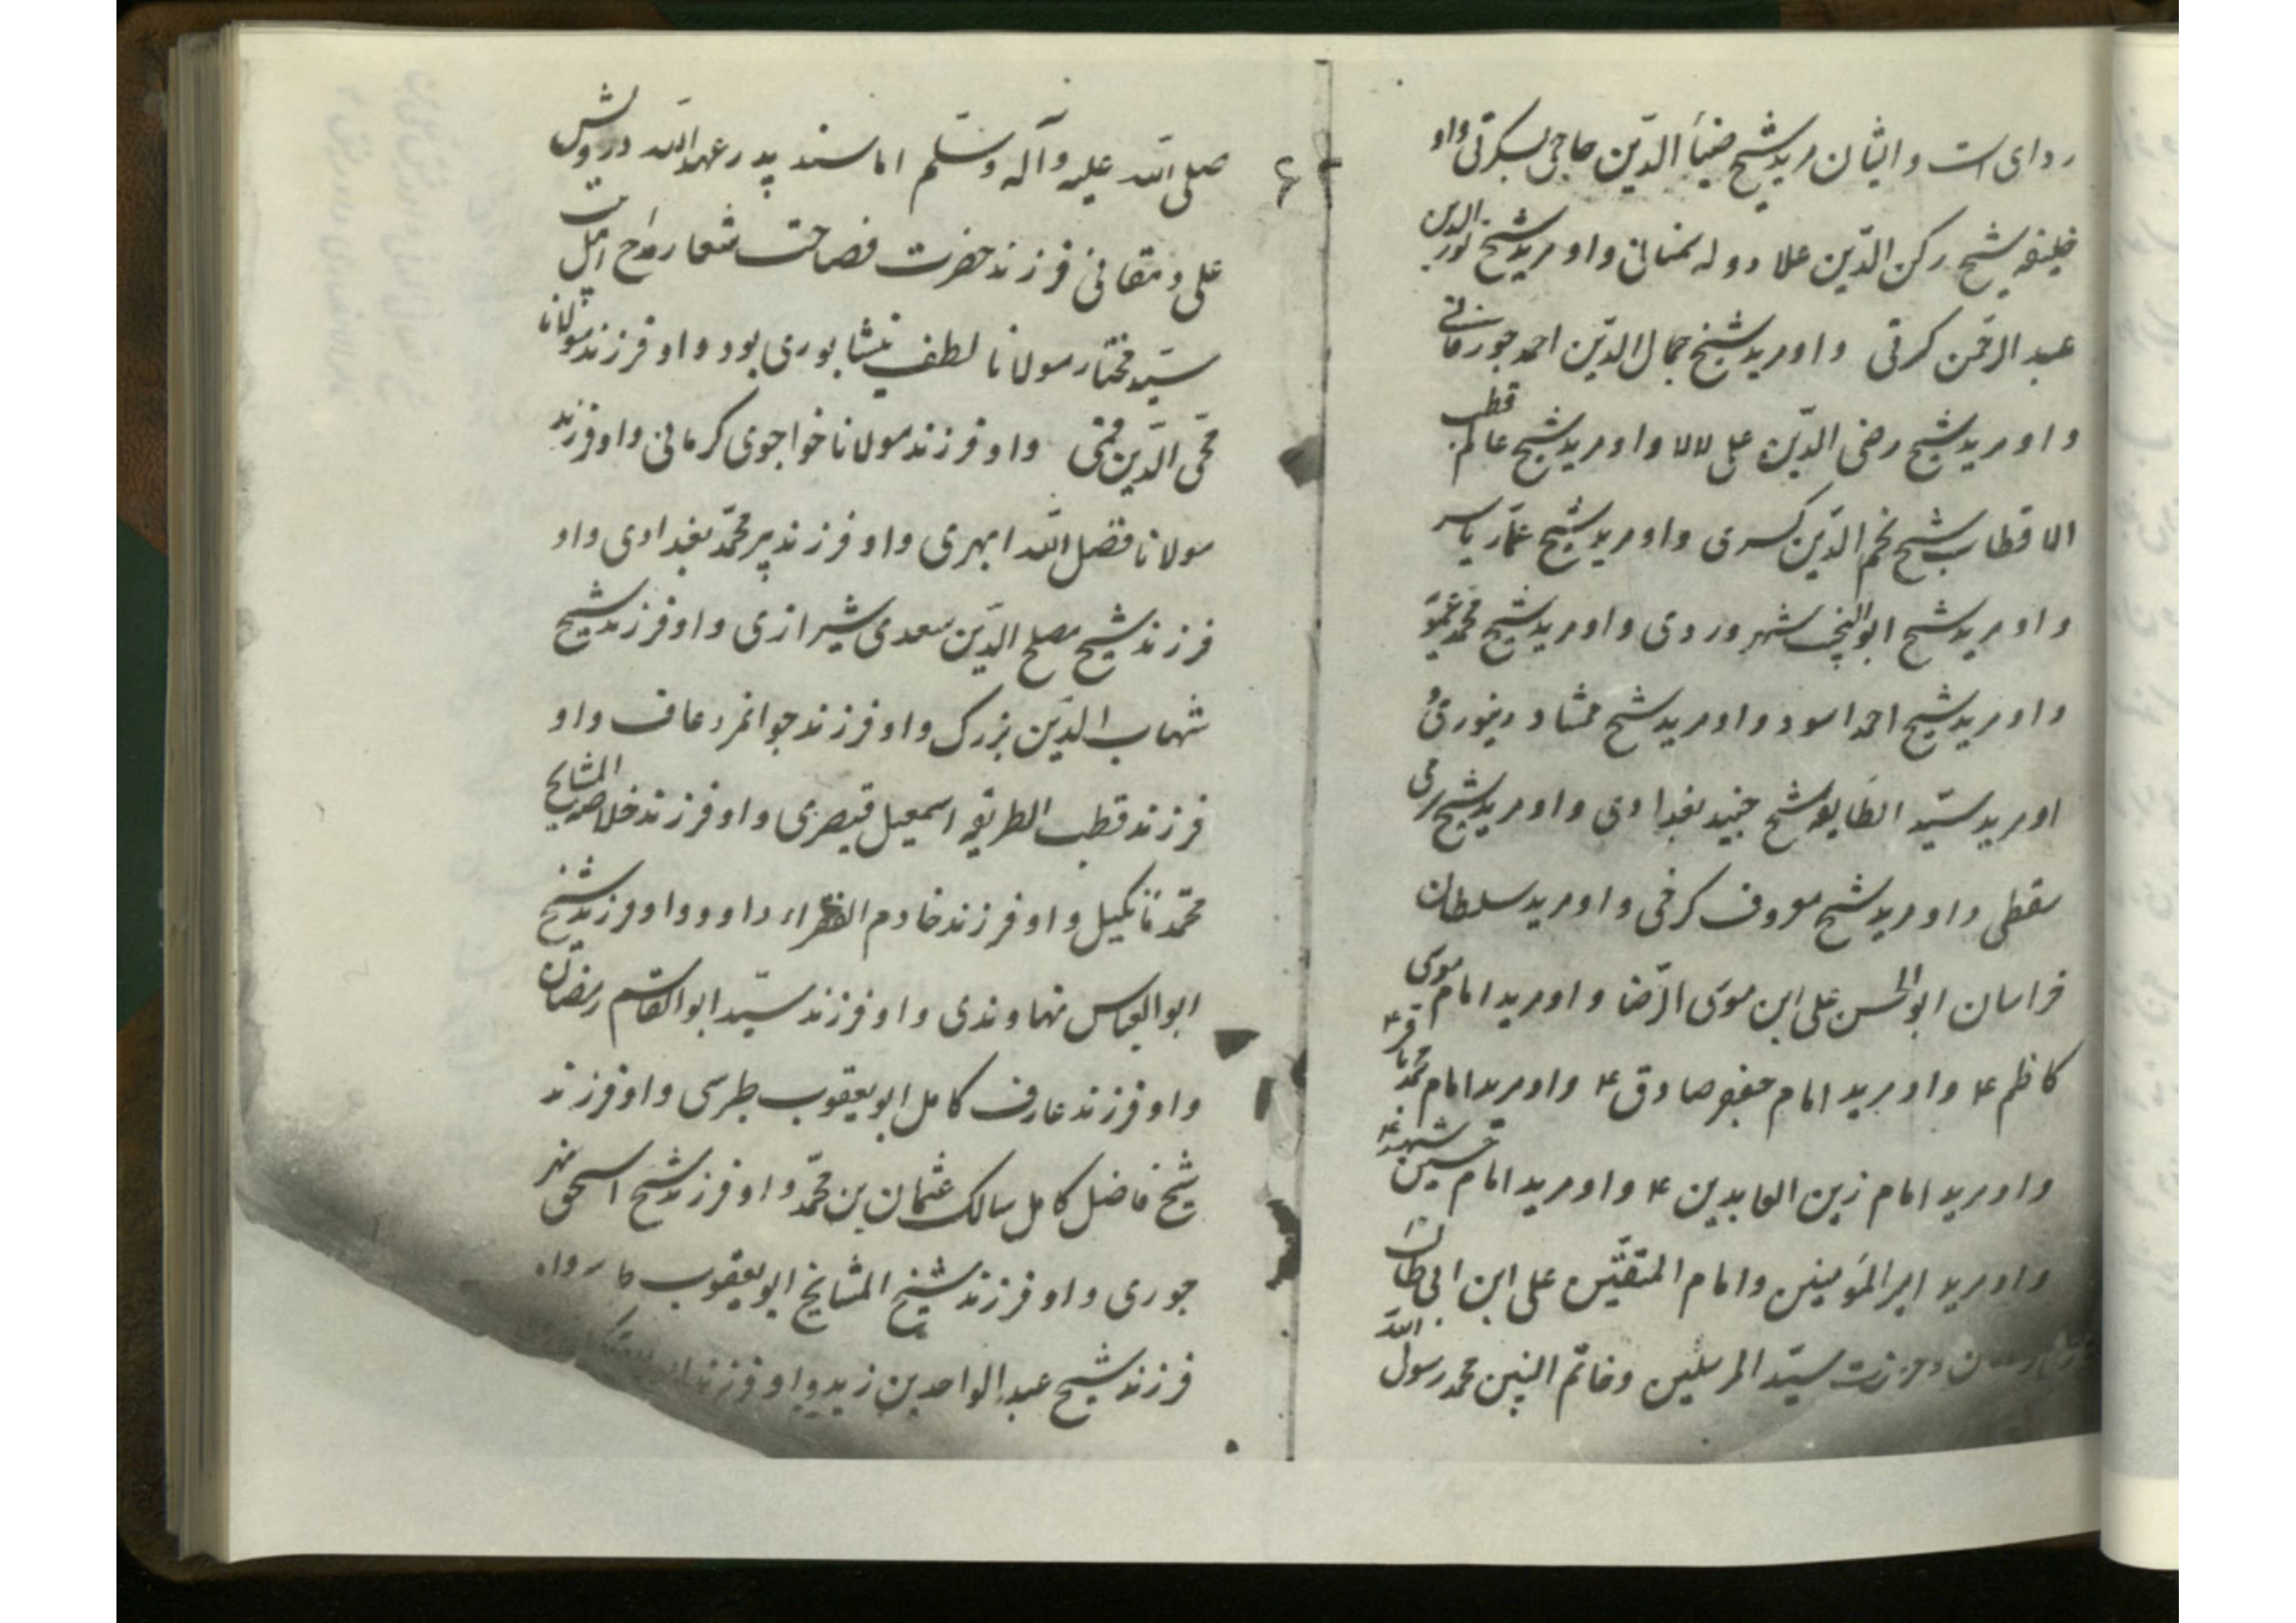 ردای است و ایشان مرید شیخ ضیأ الدّین حاجی بسکرتی و او
خلیفه شیخ رکن الدّین علا دوله سمنانی و او مرید شیخ نور الدین
عبد الرحمن کرتی و او مرید شیخ جمال الدّین احمد جورفانی
و او مرید شیخ رضی الدّین علی لالا و او مرید شیخ عالم قطب
الاقطاب شیخ نجم الدّین کسری و او مرید شیخ عمّار یاسر
و او مرید شیخ ابو النجیب شهروردی و او مرید شیخ محمد عمّویّه
و او مرید شیخ احمد اسود و او مرید شیخ ممشاد دینوری و
او مرید سیّد الطّایفه شیخ جنید بغدادی و او مرید شیخ سری
سقطی و او مرید شیخ معروف کرخی و او مرید سلطان
خراسان ابو الحسن علی ابن موسی الرّضا و او مرید امام موسی
کاظم ۴ و او مرید امام جعفر صادق ۴ و او مرید امام محمّد باقر ۴
و او مرید امام زین العابدین ۴ و او مرید امام حسین شهید ۴
و او مرید امیر المؤمینین و امام المتقّین علی ابن ابی طالب
حضرت سیّد المرسلین و خاتم النبین محمد رسول الله
صلی الله علیه و آله و سلّم اما سند پدر عهد الله درویش
علی دهقانی فرزند حضرت فصاحت شعار مداح اهل بیت
سیّد مختار مولانا لطف نیشابوری بود و او فرزند مولانا
محی الدّین قمی و او فرزند مولانا خواجوی کرمانی و او فرزند
مولانا فضل الله ابهری و او فرزند پیر محمّد بغدادی و او
فرزند شیخ مصلح الدّین سعدی شیرازی و او فرزند شیخ
شهاب الدّین بزرک و او فرزند جوانمرد عاف و او
فرزند قطب الطریقه اسمعیل قیصری و او فرزند خلاصه المشایخ
محمّد مانکیل و او فرزند خادم الفقراء داود و او فرزند شیخ
ابو العباس نهاوندی و او فرزند سیّد ابو القاسم رمضان
و او فرزند عارف کامل ابو یعقوب طبرسی و او فرزند
شیخ فاضل کامل سالک عثمان بن محمّد و او فرزند شیخ اسحق نهر
جوری و او فرزند شیخ المشایخ ابو یعقوب
فرزند شیخ عبد الواحد بن زید و او فرزند